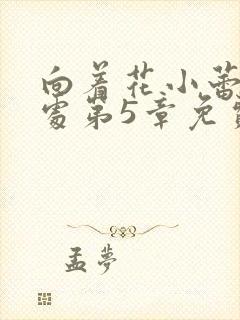 向着花小蕾
处第5章免
孟梦